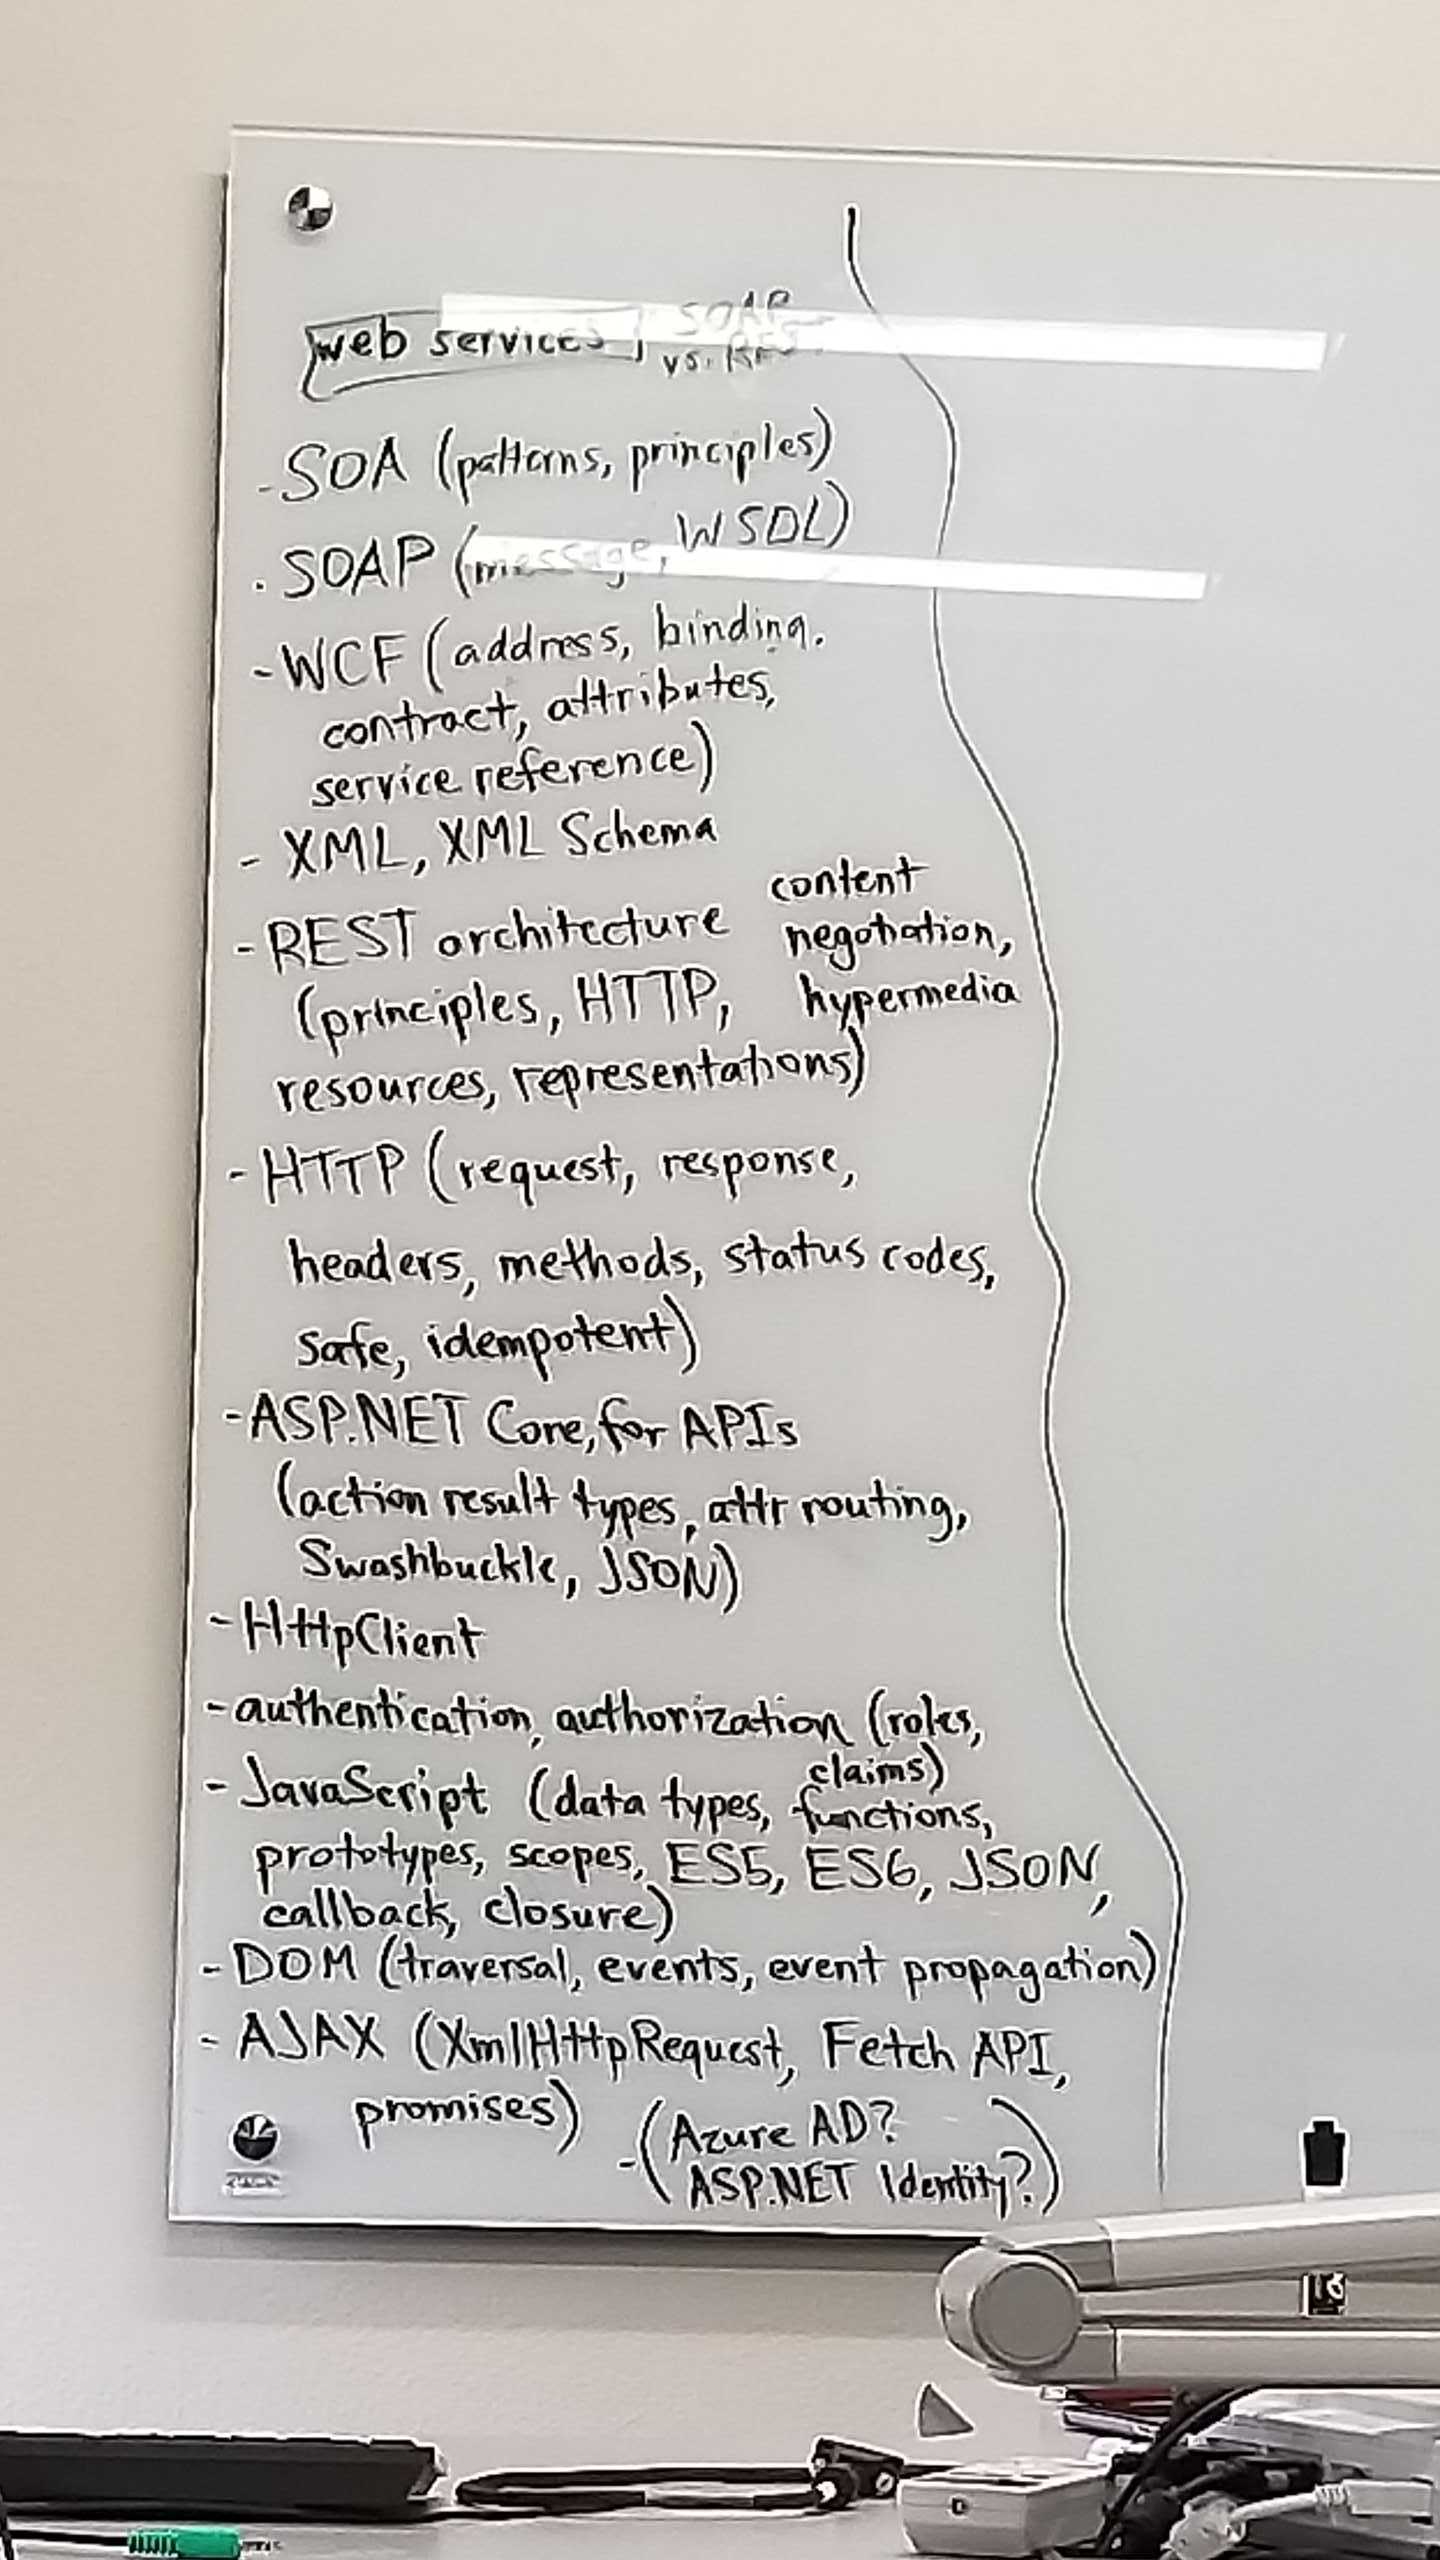 web services, SOAP
vs. REST
- SOA (patterns, principles)
- SOAP (message, WSDL)
- WCF (address, binding,
contract, attributes,
service reference)
- XML, XML Schema
- REST architecture content
negotiation,
(principles, HTTP, hypermedia
resources, representations)
- HTTP (request, response,
headers, methods, status codes,
safe, idempotent)
- ASP.NET Core, for APIs
(action result types, attr routing,
Swashbuckle, JSON)
- HttpClient
- authentication, authorization (roles,
claims)
- JavaScript (data types, functions,
prototypes, scopes, ES5, ES6, JSON,
callback, closure)
- DOM (traversal, events, event propagation)
- AJAX (XmlHttpRequest, Fetch API,
promises)
- (Azure AD?
ASP.NET Identity?)